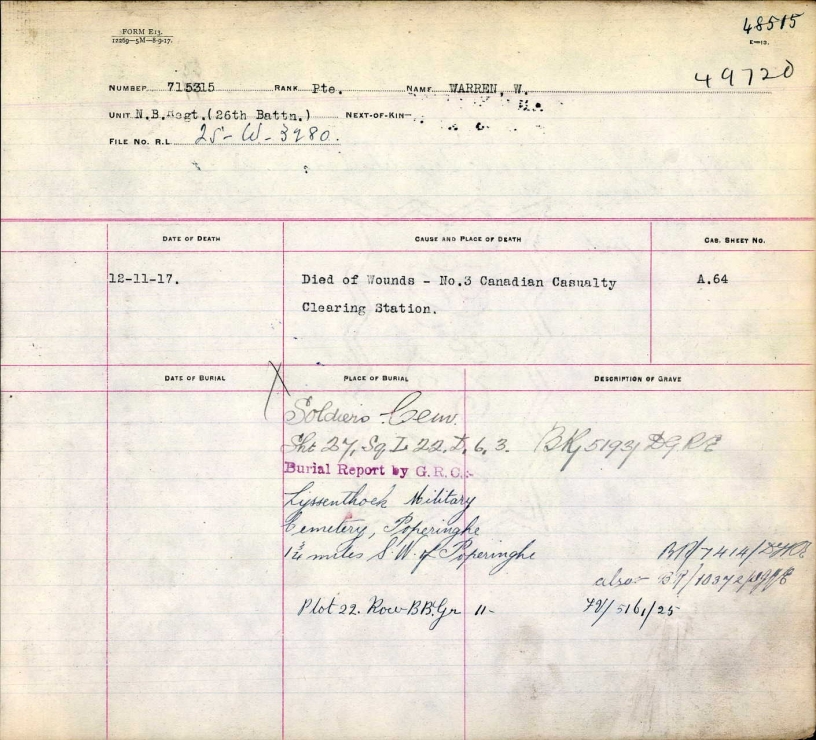 FORM E13.
12269—5M—8-9-17.
48515
E—13.
49720
NUMBER 715315 RANK Pte. NAME WARREN, W.
UNIT N.B.Regt.(26th Battn.) NEXT-OF-KIN—
FILE NO. R.L. 25-W-3980.
DATE OF DEATH CAUSE AND PLACE OF DEATH CAS. SHEET NO.
12-11-17. Died of Wounds - No.3 Canadian Casualty A.64
Clearing Station.
DATE OF BURIAL PLACE OF BURIAL DESCRIPTION OF GRAVE
Soldiers Cem.
Sht 27, Sq L 22. D. 6. 3. BR/5193/DGRE
Burial Report by G.R.C:-
Lyssenthoek Military
Cemetery, Poperinghe
1¾ miles S.W. of Poperinghe BR/7414/DGRE
also BR/10372/DGRE
Plot 22. Row BB. Gr 11-